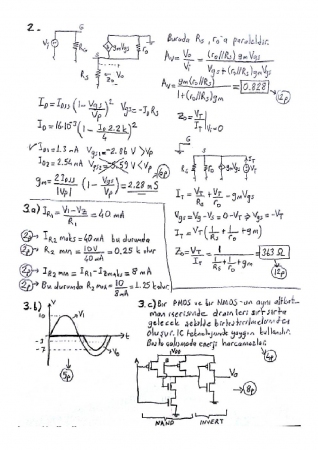 2.-
G
Vi
RG
gmVgs
rD
RS
Zo
Vo
Burada RS, rD'a paraleldir.
Av = Vo/Vi = (rD//RS) gmVgs / Vgs + (rD//RS) gmVgs
Av = gm(rD//RS) / 1+(rD//RS)gm = 0.828
12p
ID = IDSS (1 - Vgs/Vp)² Vgs = -ID RS
ID = 16.10⁻³ (1 - ID 2.2k/4)²
✓ ID1 = 1.3 mA Vgs1 = -2.86 V > Vp
ID2 = 2.54 mA Vgs2 = -5.59 V < Vp
gm = 2IDSS/|Vp| (1 - Vgs/Vp) = 2.28 mS
Zo = VT/IT | Vi=0
G
RS rD gmVgs VT
IT
IT = VT/RS + VT/rD - gmVgs
Vgs = Vg - Vs = 0 - VT ⇒ Vgs = -VT
IT = VT (1/RS + 1/rD + gm)
Zo = VT/IT = 1 / 1/RS + 1/rD + gm = 363 Ω
12p
3.a) IR1 = V1 - VZ / R1 = 40 mA
2p → IR2 maks = 40 mA bu durumda
2p → R2 min = 10V/40mA = 0.25 k dur
2p → IR2 min = I1 - IZmaks = 8 mA
2p → Bu durumda R2 max = 10/8mA = 1.25 kdur.
3.b)
V
10
V1
t
-3
-7
Vo
5p
3.c) Bir PMOS ve bir NMOS -un aynı altbet-
man içerisinde drainleri sırt sırta
gelecek şekilde birleştirilmelerinden
oluşur. IC teknolojisinde yaygın kullanılır.
Boşta çalışmada enerji harcamazlar.
VDD
Vo
8p
NAND INVERT